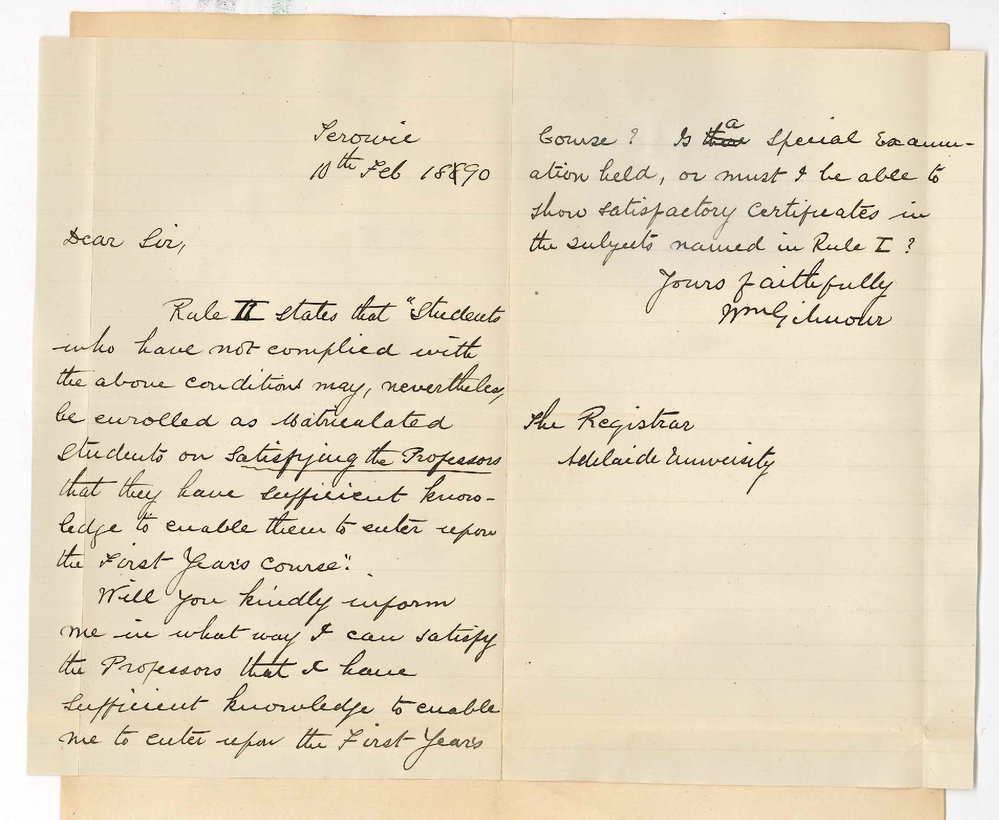 Terowie
10th Feb 1890
Dear Sir,
Rule II states that "Students
who have not complied with
the above conditions may, nevertheless,
be enrolled as Matriculated
Students on satisfying the Professors
that they have sufficient know-
ledge to enable them to enter upon
the First Year's course".
Will you kindly inform
me in what way I can satisfy
the Professors that I have
sufficient knowledge to enable
me to enter upon the First Year's
Course? Is a Special Examin-
ation held, or must I be able to
show satisfactory certificates in
the subjects named in Rule I?
Yours faithfully
Wm Gilmour
The Registrar
Adelaide University